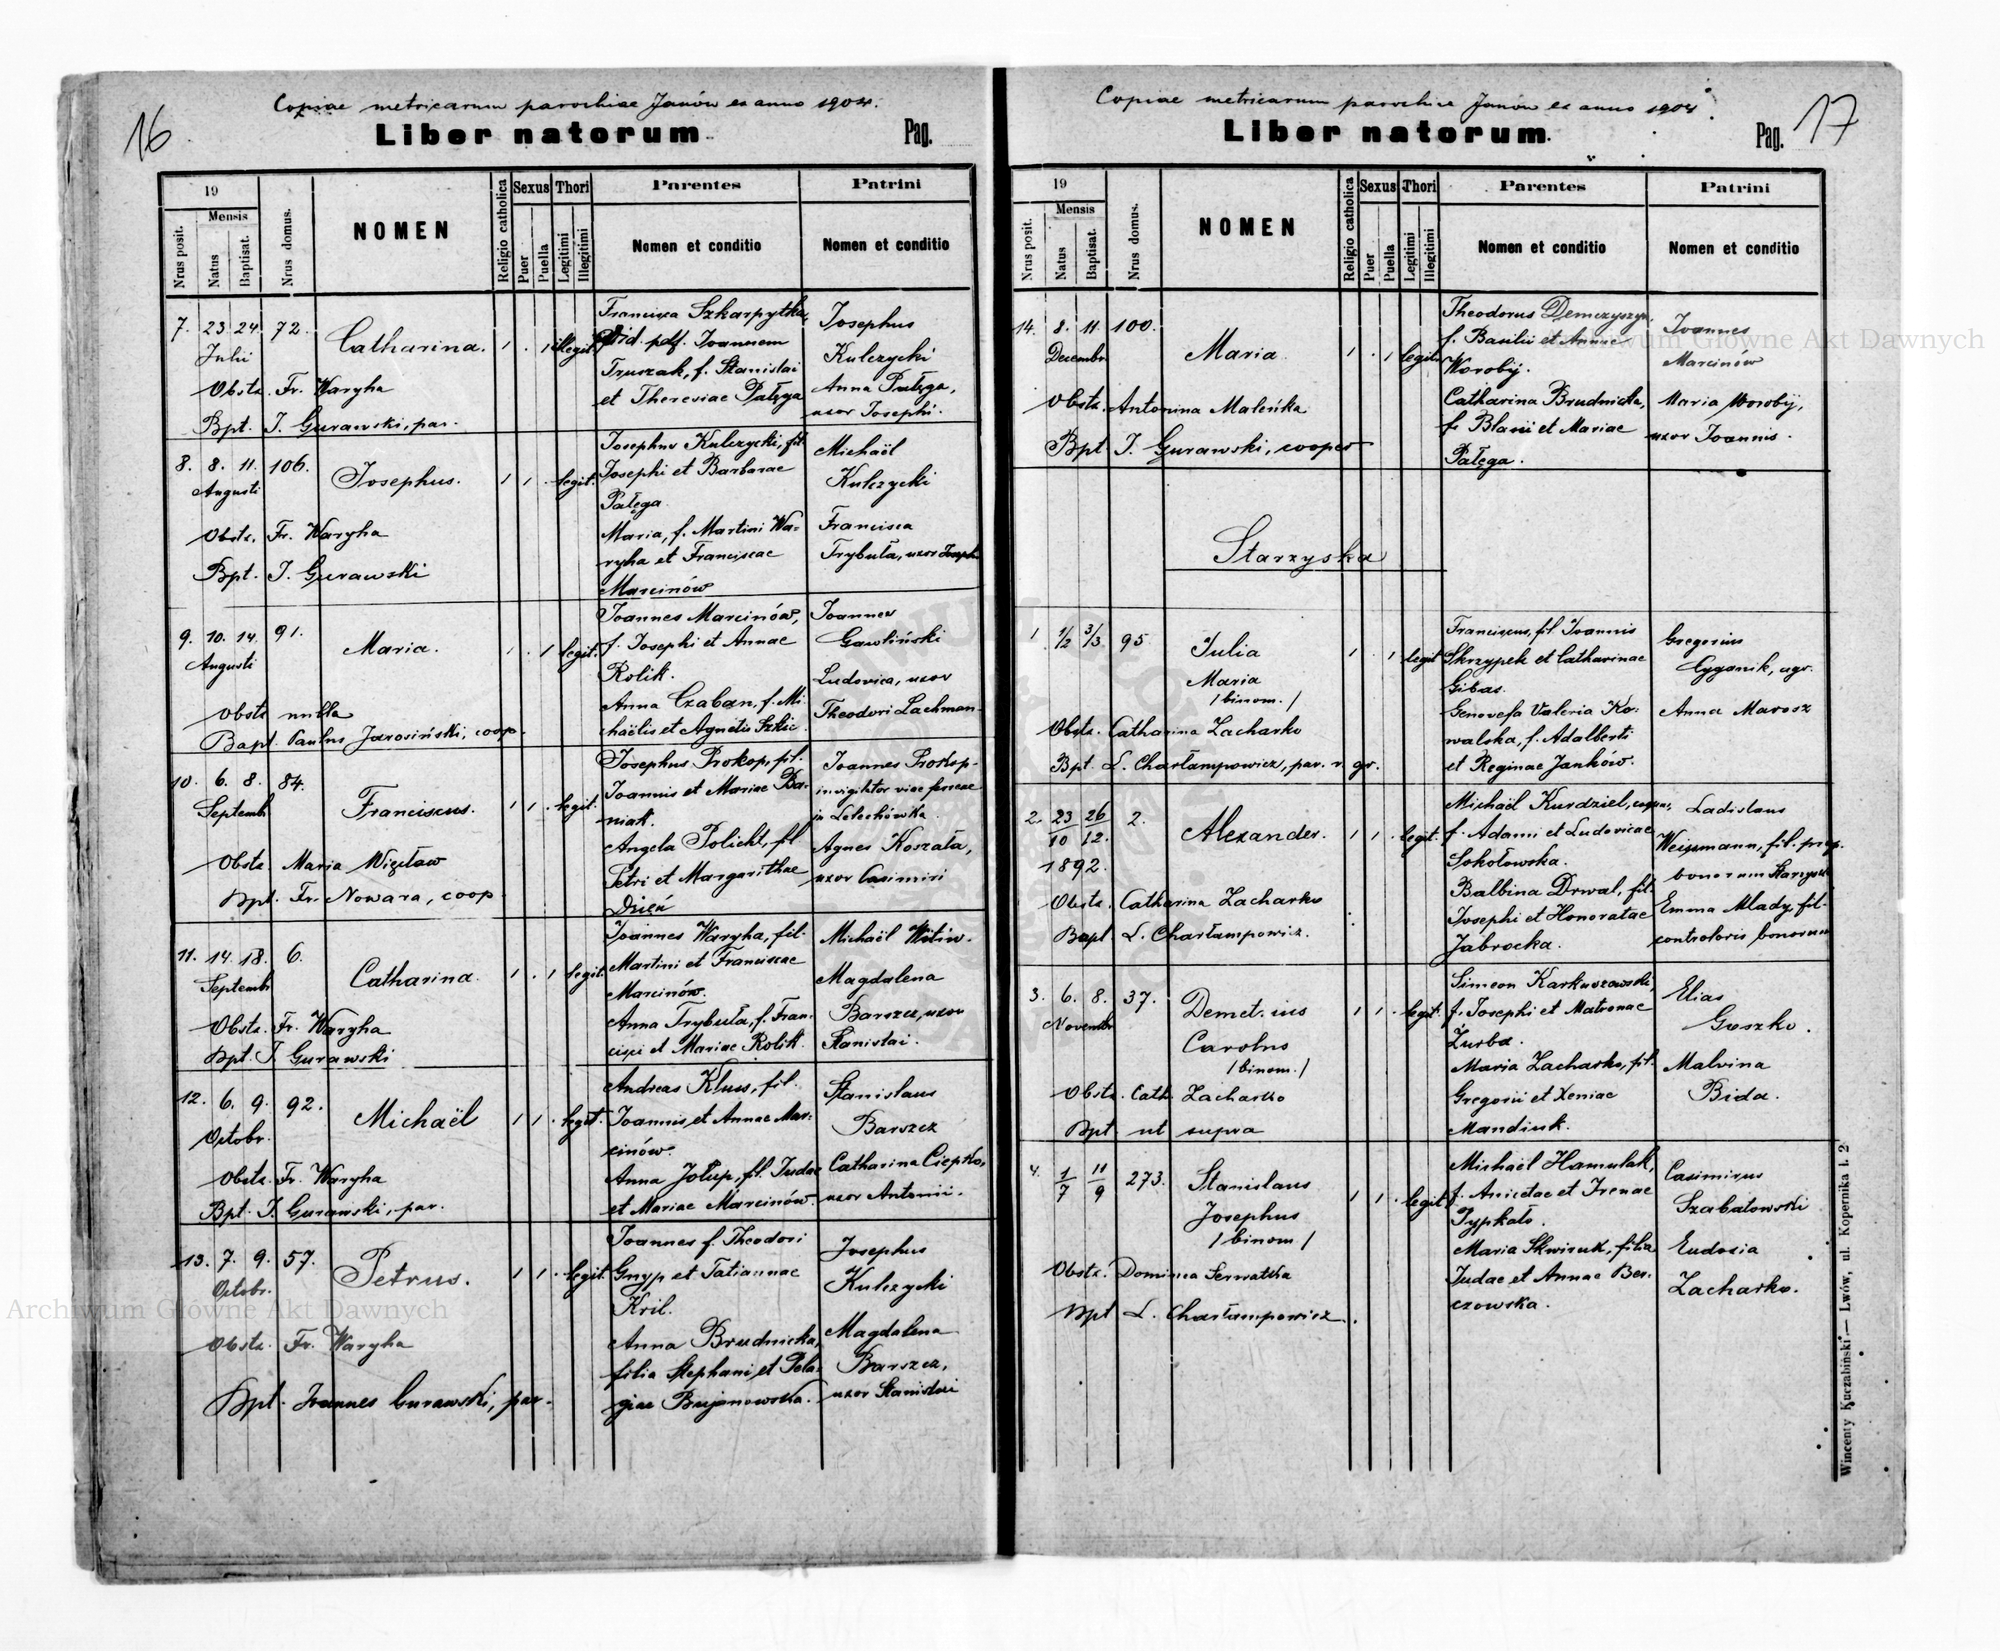 16
Copiae metricarum parochiae Janów ex anno 1904.
Liber natorum
Pag.
19
Mensis
Nrus posit.
Natus
Baptisat.
Nrus domus.
NOMEN
Religio catholica
Sexus
Puer
Puella
Thori
Legitimi
Illegitimi
Parentes
Nomen et conditio
Patrini
Nomen et conditio
7. 23. 24. 72.
Julii
Catharina.
1 . 1 illegit.
Francisca Szkarpytka,
Joannem
Truszak, f. Stanislai
et Theresiae Pałęga
Josephus
Kulczycki
Anna Pałęga,
uxor Josephi.
Obstr. Fr. Waryha
Bpt. J. Gurawski, par.
8. 8. 11. 106.
Augusti
Josephus.
1 1 . legit.
Josephus Kulczycki, fil.
Josephi et Barbarae
Pałęga
Maria, f. Martini Wa-
ryha et Franciscae
Marcinów
Michaël
Kulczycki
Francisca
Trybuła, uxor Josephi
Obstr. Fr. Waryha
Bpt. J. Gurawski
9. 10. 14. 91.
Augusti
Maria.
1 . 1 legit.
Joannes Marcinów,
f. Josephi et Annae
Rolik.
Anna Czaban, f. Mi-
chaëlis et Agnetis
Joannes
Gawliński
Ludovica, uxor
Theodori Lachman
Obstr. nulla
Bapt. Paulus Jarosiński, coop.
10. 6. 8. 84.
Septembr.
Franciscus.
1 1 . legit.
Josephus Prokop, fil.
Joannis et Mariae Ba-
niak.
Angela Policht, fil.
Petri et Margarithae
Dzień
Joannes Prokop
invigilator viae ferreae
in Lelechówka.
Agnes Koszała,
uxor Casimiri
Obstr. Maria Więsław
Bpt. Fr. Nowara, coop.
11. 14. 18. 6.
Septembr.
Catharina.
1 . 1 legit.
Joannes Waryha, fil.
Martini et Franciscae
Marcinów.
Anna Trybuła, f. Fran-
cisci et Mariae Rolik.
Michaël
Magdalena
Barszcz, uxor
Stanislai.
Obstr. Fr. Waryha
Bpt. J. Gurawski
12. 6. 9. 92.
Octobr.
Michaël
1 1 . legit.
Andreas Klus, fil.
Joannis, et Annae Mar-
cinów.
Anna Jołup, fil. Judae
et Mariae Marcinów.
Stanislaus
Barszcz
Catharina Ciepko,
uxor Antonii.
Obstr. Fr. Waryha
Bpt. J. Gurawski, par.
13. 7. 9. 57.
Octobr.
Petrus.
1 1 . legit.
Joannes f. Theodori
Gnyp et Tatiannae
Kril.
Anna Brudnicka,
filia Stephani et Pela-
giae Bujanowska.
Josephus
Kulczycki
Magdalena
Barszcz,
uxor Stanislai
Obstr. Fr. Waryha
Bpt. Joannes Gurawski, par.
17
Copiae metricarum parochiae Janów ex anno 1904.
Liber natorum.
Pag.
19
Mensis
Nrus posit.
Natus
Baptisat.
Nrus domus.
NOMEN
Religio catholica
Sexus
Puer
Puella
Thori
Legitimi
Illegitimi
Parentes
Nomen et conditio
Patrini
Nomen et conditio
14. 8. 11. 100.
Decembr.
Maria
1 . 1 legit.
Theodorus Demczyszyn,
f. Basilii et Annae
Worobij.
Catharina Brudnicka,
f. Blasii et Mariae
Pałęga.
Joannes
Marcinów
Maria Worobij,
uxor Joannis.
Obstr. Antonina Maleńka
Bpt. J. Gurawski, cooper
Starzyska
1 1/2 3/3 95
Julia
Maria
/binom./
1 . 1 legit
Franciscus, fil. Joannis
Skrzypek et Catharinae
Gibas.
Genovefa Valeria Ko-
walska, f. Adalberti
et Reginae Janków.
Gregorius
Cyganik, agr.
Anna Marosz
Obstr. Catharina Zacharko
Bpt. L. Charłampowicz, par. r. gr.
2. 23/10 26/12. 2.
1892.
Alexander.
1 1 . legit.
Michaël Kurdziel,
f. Adami et Ludovicae
Sokołowska.
Balbina Drwal, fil.
Josephi et Honoratae
Jabrocka.
Ladislaus
Weissmann, fil. prop.
bonorum Starzysk
Emma Mlady, fil.
controloris bonorum
Obstr. Catharina Zacharko
Bapt. L. Charłampowicz.
3. 6. 8. 37.
Novembr.
Demetrius
Carolus
/binom./
1 1 . legit.
Simeon Karkuszewski,
f. Josephi et Matronae
Zurba.
Maria Zacharko, fil.
Gregorii et Xeniae
Mandiuk.
Elias
Goszko.
Malvina
Bida.
Obstr. Cath. Zacharko
Bpt. ut supra
4. 1/7 11/9 273.
Stanislaus
Josephus
/binom/
1 1 . legit.
Michaël Hamulak,
f. Anicetae et Irenae
Typkało.
Maria Skwiruk, filia
Judae et Annae Ber-
czowska.
Casimirus
Szabatowski
Eudosia
Zacharko.
Obstr. Dominica Serwatka
Bpt L. Charłampowicz.
Wincenty Kuczabiński — Lwów, ul. Kopernika l. 2
Archiwum Główne Akt Dawnych
Archiwum Główne Akt Dawnych